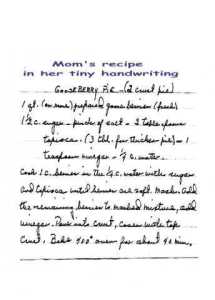 Mom's recipe
in her tiny handwriting
GOOSEBERRY PIE - (2 crust pie)
1 qt. (or more) prepared gooseberries (fresh)
1 1/2 c. sugar - pinch of salt - 2 tablespoons
tapioca - (3 tbl. for thicker pie) - 1
teaspoon vinegar - 1/4 c. water.
Cook 1 c. berries in the 1/4 c. water with sugar
and tapioca until berries are soft. Mash. Add
the remaining berries to mashed mixture, add
vinegar. Pour into crust, cover with top
crust. Bake 400° oven for about 40 min.